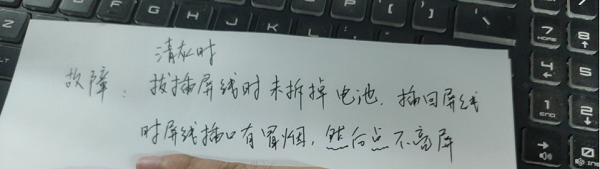 清灰时
故障：拔插屏线时未拆掉电池．插回屏线
时屏线插口有冒烟，然后点不亮屏
7
HOME
8
4
5
1
END
2
0
INS